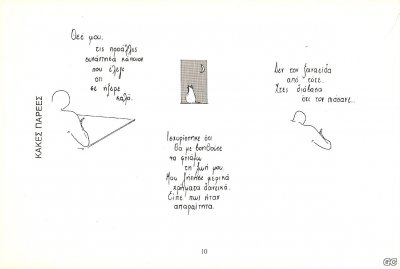 ΚΑΚΕΣ ΠΑΡΕΕΣ
Θεέ μου,
τις προάλλες
συνάντησα κάποιον
που έλεγε
ότι
σε ήξερε
καλά.
Ισχυρίστηκε ότι
θα με βοηθούσε
να φτιάξω
τη ζωή μου.
Μου ζήτησε μερικά
χρήματα δανεικά.
Είπε πως ήταν
απαραίτητα.
Δεν τον ξαναείδα
από τότε.
Χτες διάβασα
ότι τον πιάσανε.
10
GC